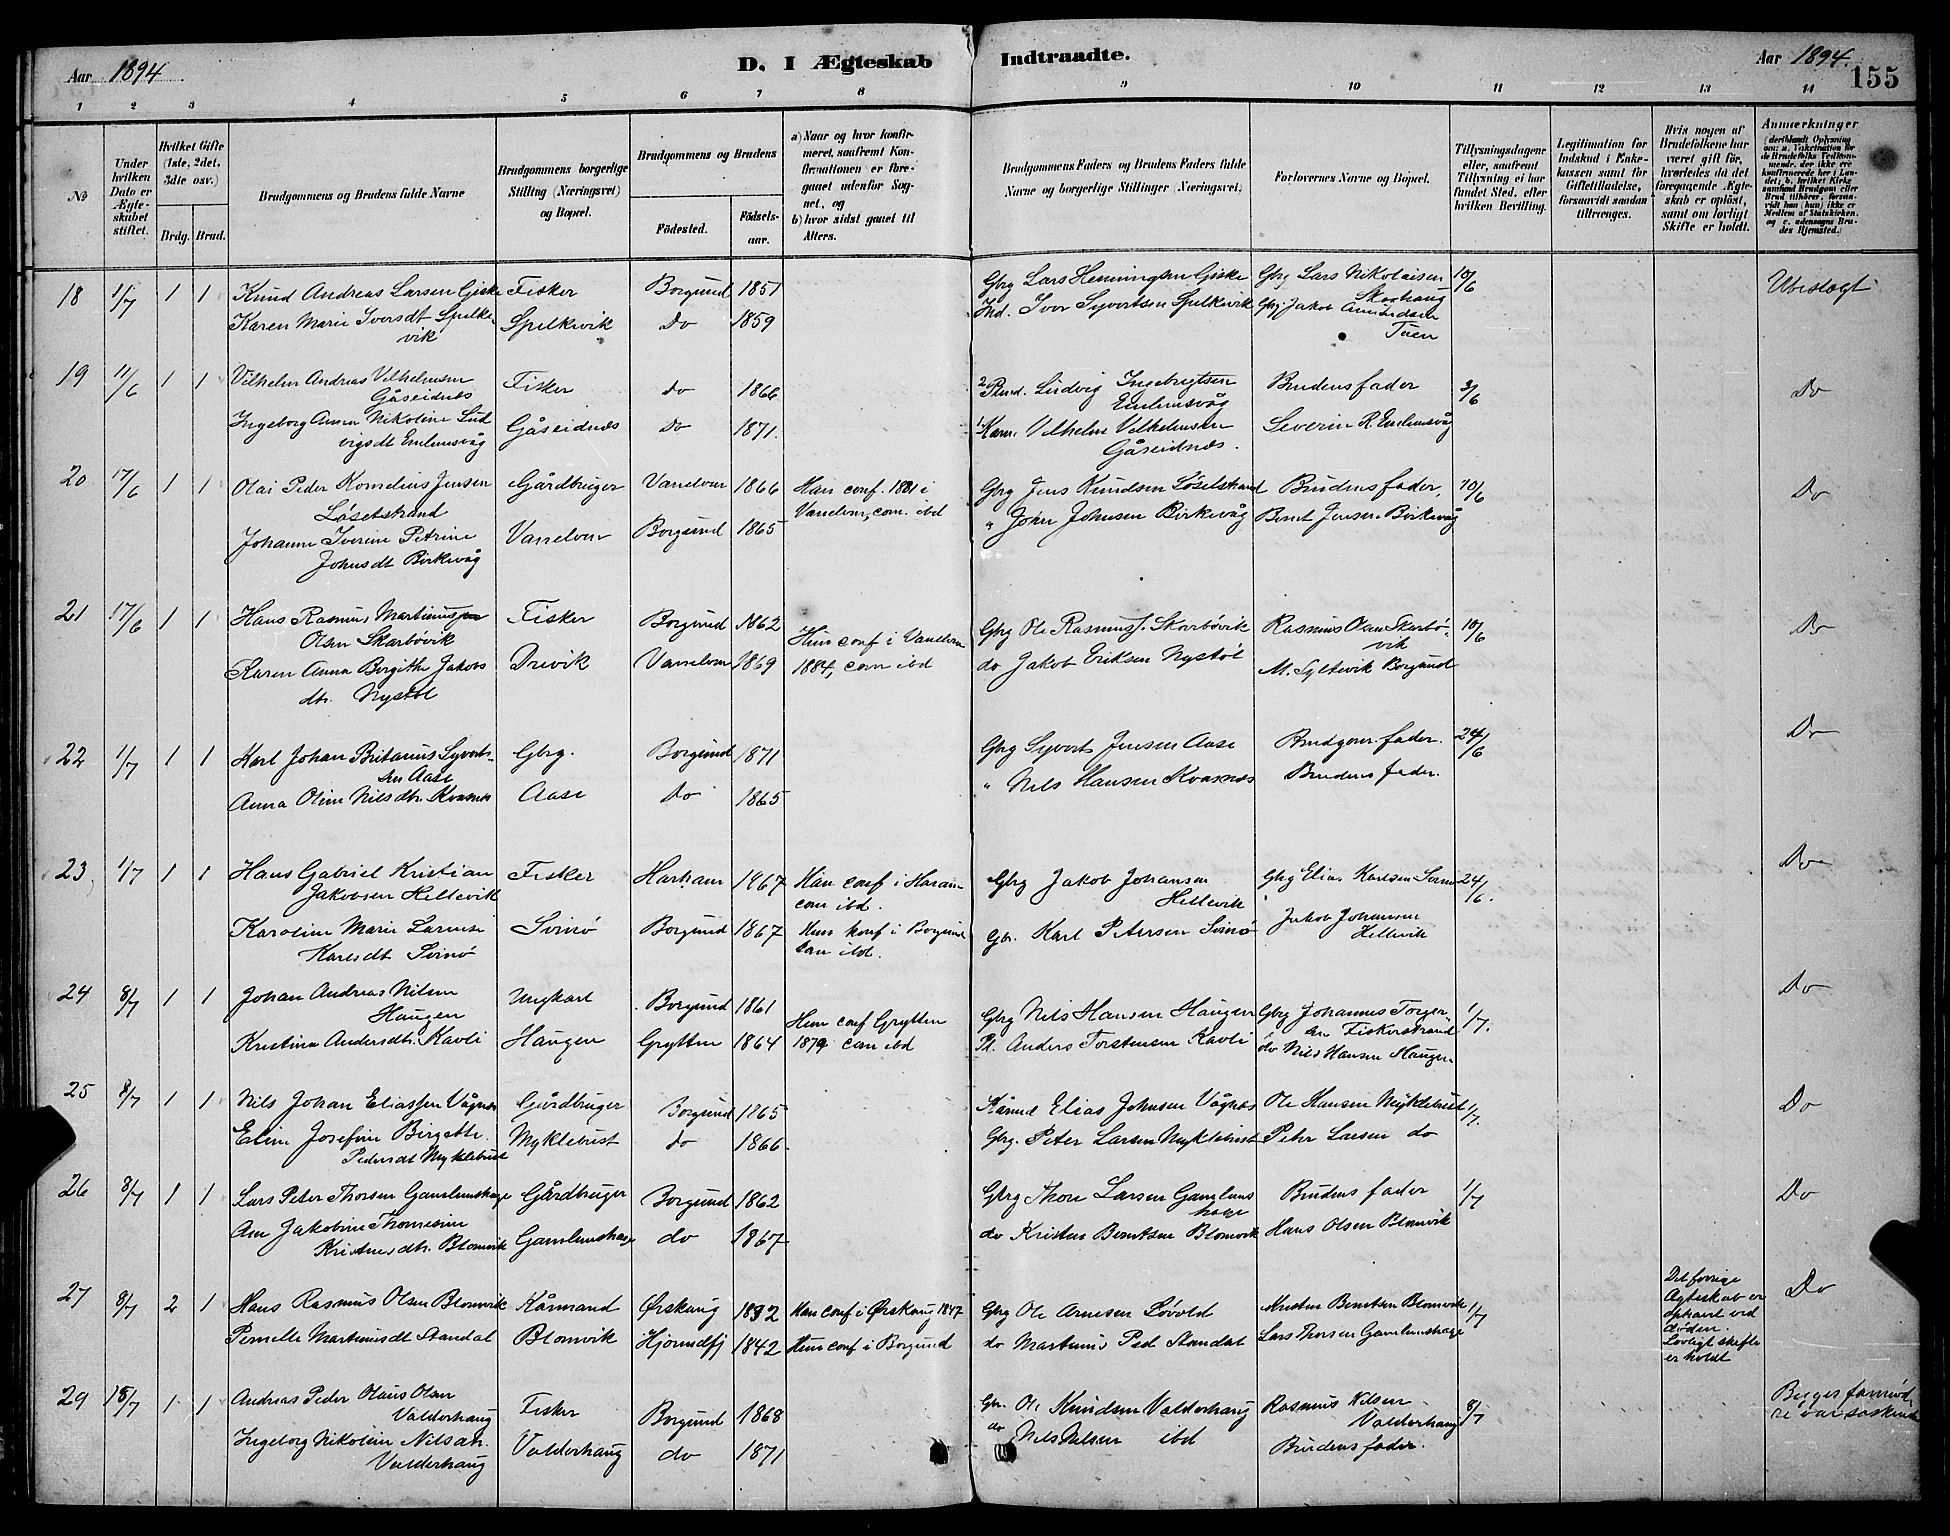 Aar 1894
D. I Ægteskab Indtraadte.
Aar 1894.
155
1 2 3 4 5 6 7 8 9 10 11 12 13 14
№
Under hvilken Dato er Ægteskabet stiftet.
Hvilket Gifte (1ste, 2det, 3die osv.)
Brdg. Brud.
Brudgommens og Brudens fulde Navne
Brudgommens borgerlige Stilling (Næringsvei) og Bopæl.
Brudgommens og Brudens
Födested.
Födselsaar.
a) Naar og hvor konfirmeret, saafremt Konfirmationen er foregaaet udenfor Sognet, og
b) hvor sidst gaaet til Alters.
Brudgommens Faders og Brudens Faders fulde Navne og borgerlige Stillinger (Næringsvei)
Forlovernes Navne og Bopæl.
Tillysningsdagene eller, saafremt Tillysning ei har fundet Sted, efter hvilken Bevilling.
Legitimation for Indskud i Enkekassen samt for Giftetilladelse, forsaavidt saadan tiltrænges.
Hvis nogen af Brudefolkene har været gift för, hvorledes da det foregaaende Ægteskab er oplöst, samt om lovligt Skifte er holdt.
Anmærkninger
18 1/7 1 1 Knud Andreas Larsen Giske Fisker Borgund 1851 Gbrg Lars Henningsen Giske Gbrg Lars Nikolaisen 10/6 Ubeslægt
Skorhaug
Karen Marie Iversdt Spelke- Spelkevik Do 1859 Ind. Iver Syvertsen Spelkevik Gbrg Jakob Amundsen
vik Tuen
19 11/6 1 1 Vilhelm Andreas Vilhelmsen Fisker do 1866 2 Ludvig Ingebrigtsen Brudens fader 3/6 Do
Gåseidnes Emlemsvåg
Ingeborg Anna Nikoline Lud Gåseidnes do 1871. 1 Vilhelm Vilhelmsen Severin R. Emlemsvåg
vigsdt Emlemsvåg Gåseidnes.
20 17/6 1 1 Olai Peder Kornelius Jensen Gårdbruger Vanelven 1866 Han conf. 1881 i Gbrg Jens Knudsen Løsetstrand Brudens fader, 10/6 Do
Løsetstrand Vanelven, com. ibd
Johanne Iverine Petrine Vanelven Borgund 1865 " Johan Johnsen Birkevåg Bernt Jensen Birkevåg
Johnsdt Birkevåg
21 17/6 1 1 Hans Rasmus Martinus Fisker Borgund 1862 Gbrg Ole Rasmus J. Skarbövik Rasmus Olsen Skarbö- 10/6 Do
Olsen Skarbövik Hun conf i Vanelven vik
Karen Anna Borgithe Jakobs Drivik Vanelven 1869 1884, com ibd do Jakob Eriksen Nystöl M. Syltevik Borgund
dtr. Nystöl
22 1/7 1 1 Karl Johan Britanus Syvert- Gbrg. Borgund 1871 Gbrg Syvert Jensen Aase Brudgom. fader. 24/6 Do
sen Aase
Anna Oline Nilsdtr. Kvasnes Aase Do 1865 " Nils Hansen Kvasnes Brudens fader.
23 1/7 1 1 Hans Gabriel Kristian Fisker Harham 1867 Han conf i Haram Gbrg Jakob Johansen Gbrg Elias Karlsen Svinø 24/6. Do
Jakobsen Hellevik com ibd. Hellevik
Karoline Marie Larnise Svinø Borgund 1867 Hun konf i Borgund Gbr. Karl Petersen Svinø Jakob Johansen
Karlsdt Svinø com ibd. Hellevik
24 8/7 1 1 Johan Andreas Nilsen Ungkarl Borgund 1861 Gbrg Nils Hansen Haugen Gbrg Johannes Torger- 1/7. Do
Haugen Hun conf Grytten sen Fiskerstrand
Kristina Andersdtr. Kavli Haugen Grytten 1864 1879 com ibd Pl. Anders Torstensen Kavli do Nils Hansen Haugen
25 8/7 1 1 Nils Johan Eliassen Vågnes Gårdbruger Borgund 1865 Kårmd Elias Johnsen Vågnes Ole Hansen Myklebust 1/7. Do
Eline Josefine Birgette Myklebust do 1866. Gbrg. Peter Larsen Myklebust Peter Larsen do
Pedersdt Myklebust
26 8/7 1 1 Lars Peter Thorsen Gamlemshage Gårdbruger Borgund 1862 Gbrg Thore Larsen Gamlems Brudens fader 1/7 Do
hage
Ane Jakobine Thomesine Gamlemshage do 1867 do Kristen Berntsen Blomvik Hans Olsen Blomvik
Kristensdtr. Blomvik
27 8/7 2 1 Hans Rasmus Olsen Blomvik Kårmand Ørskaug 1832 Han conf i Ørskaug 1847 Gbrg Ole Arnesen Lövold Kristen Berntsen Blomvik 1/7 Do
Pernelle Martinusdt Standal Blomvik Hjörundfj 1842 Hun conf i Borgund do Martinus Ped Standal Lars Thorsen Gamlemshage
Det forrige
Ægteskab er
ophævet ved
döden.
Lovligt skifte
er holdt
29 15/7 1 1 Andreas Peder Olaus Olsen Fisker Borgund 1868 Gbr. Ole Knudsen Valderhaug Rasmus Nilsen 8/7 Begges formöd
Valderhaug Valderhaug re var søskend
Ingeborg Nikoline Nilsdtr. Valderhaug do 1871 do Nils Nilsen ibd Brudens fader.
Valderhaug